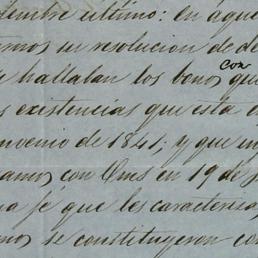 iembre último: en aque
amos su resolucion de de
hallaban los bonos que
Con
s existencias que esta e
nvenio de 1841; y que in
amos con Oms en 19 de J
a fé que les caracteriza,
nos se constituyeron co